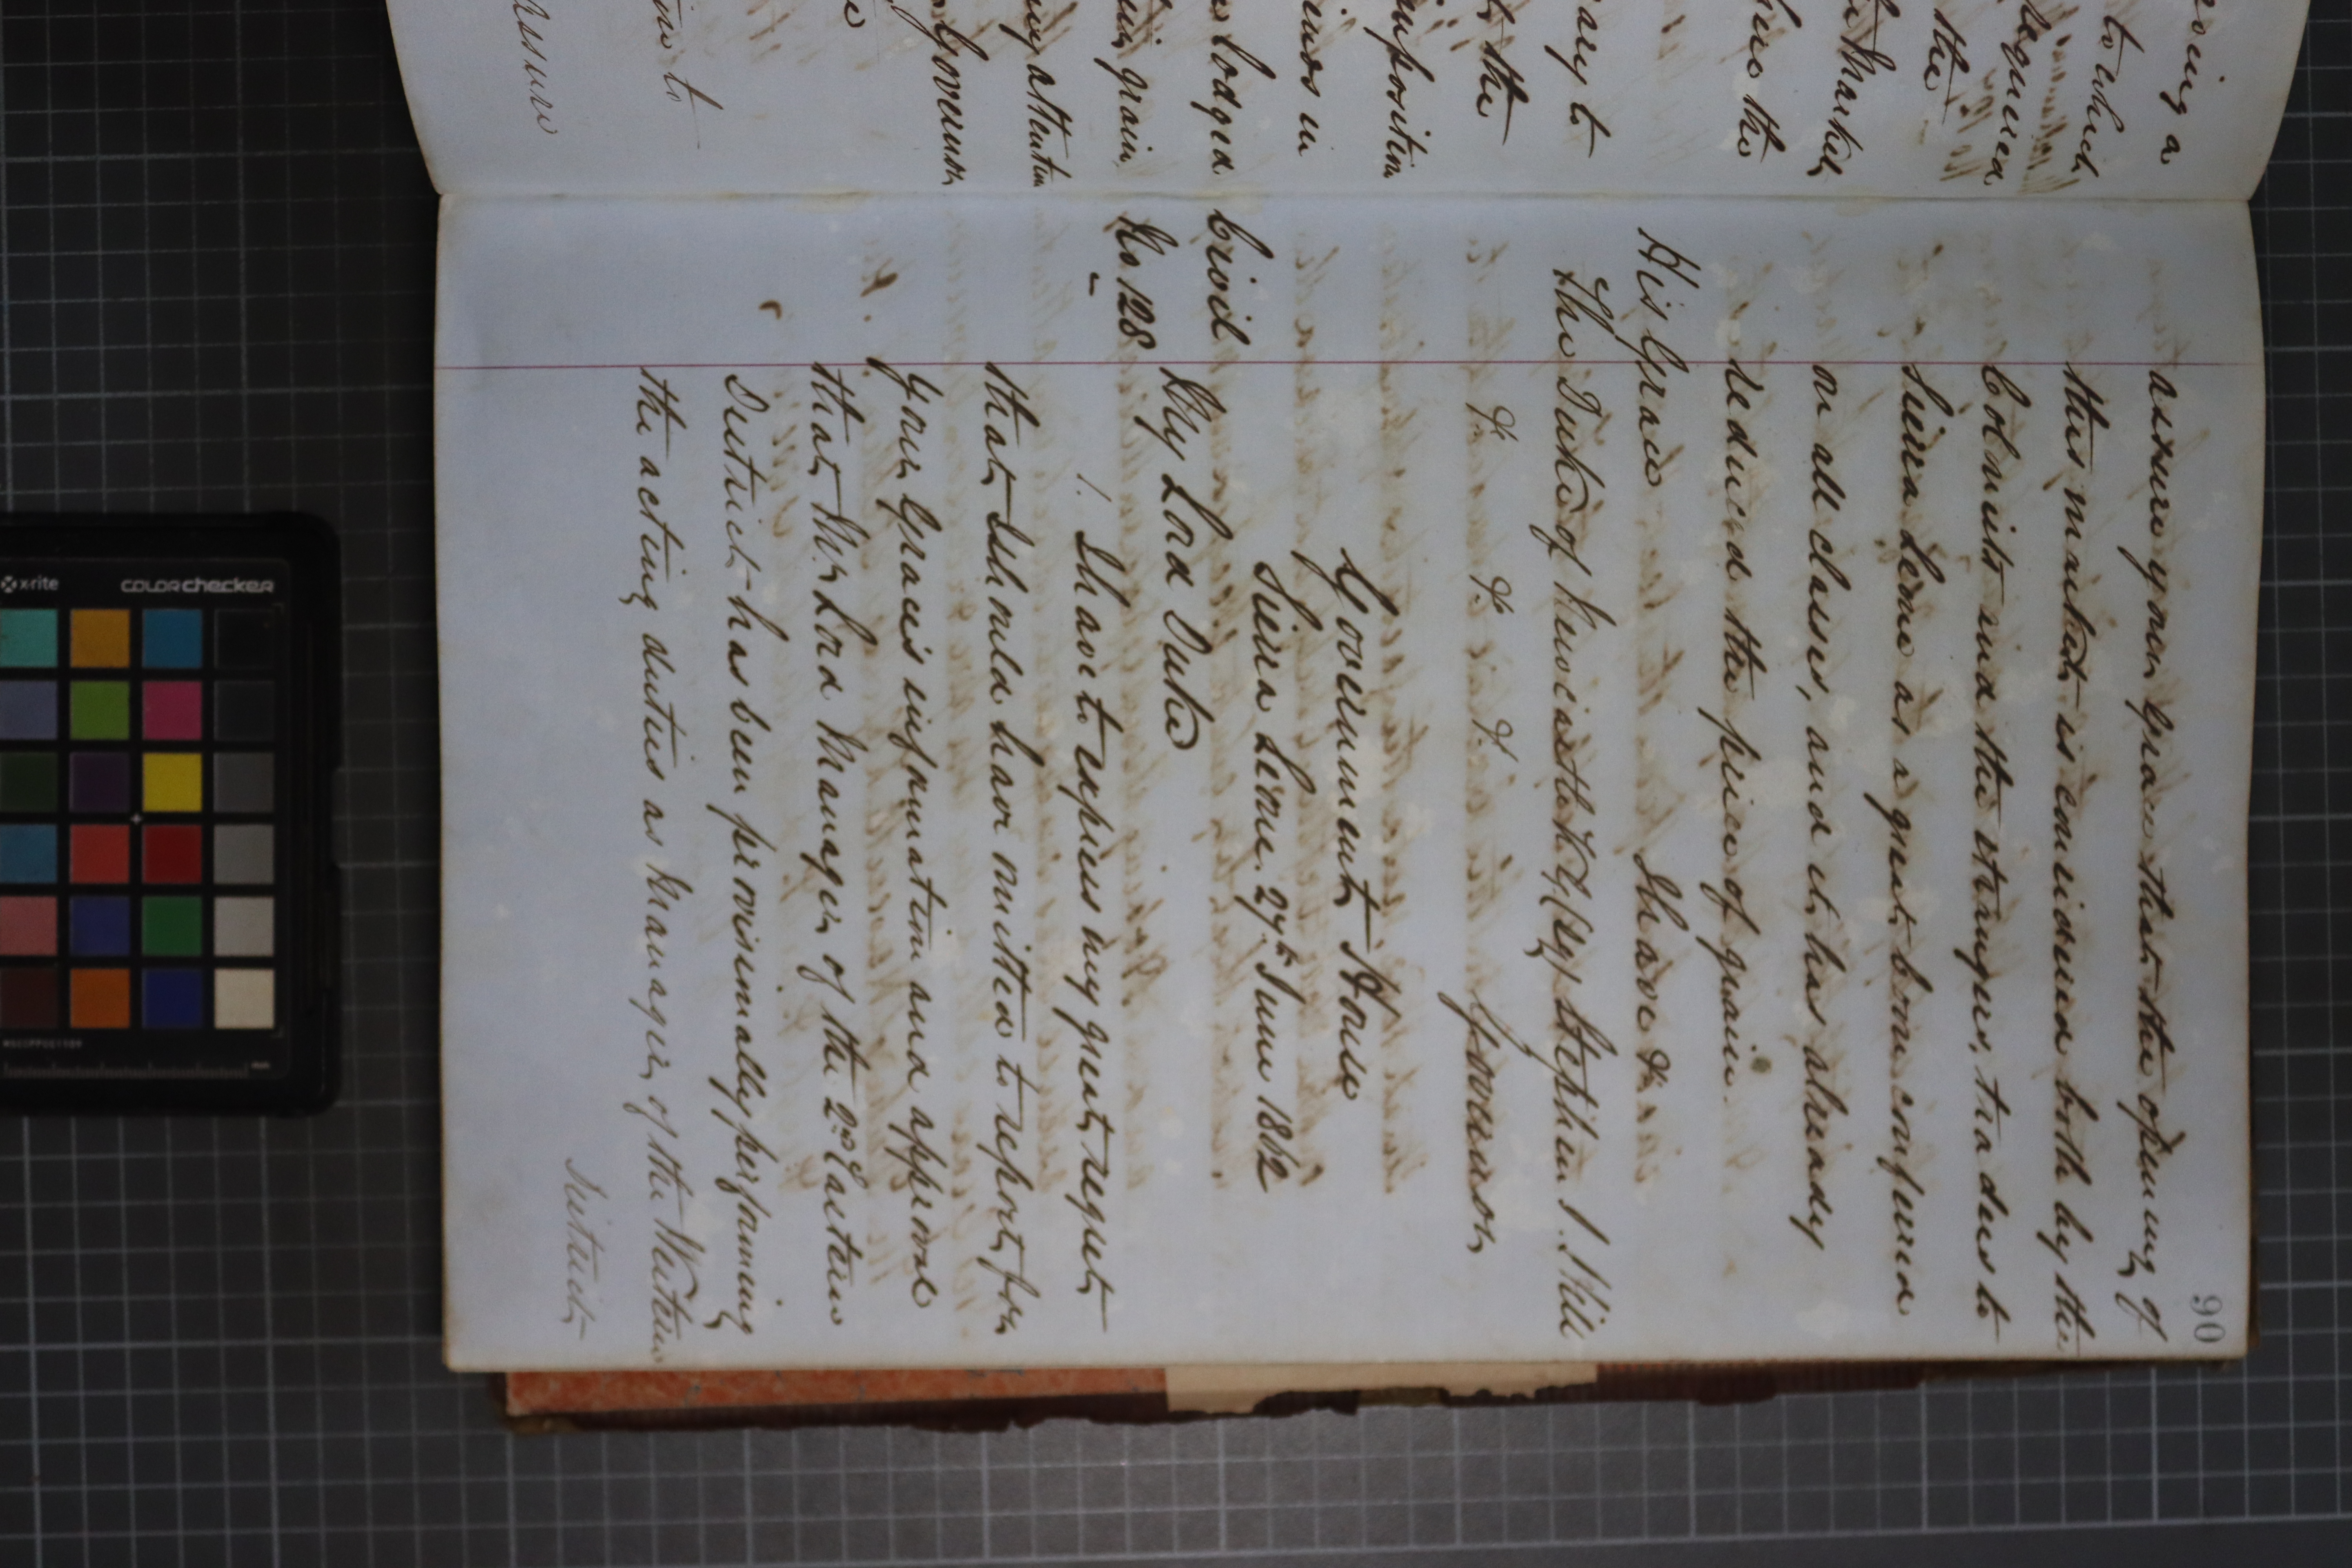 90
assure your Grace that the opening of
this market is considered both by the
Colonists and the strangers, traders to
Sierra Leone as a great boon conferred
on all classes, and it has already
reduced the price of grain.
I have &c
His Grace
The Duke of Newcastle K.G. (Sg) Stephen J. Hill
&c &c &c Governor
Government House
Sierra Leone. 27th June 1862
Civil
No 128
My Lord Duke
1. I have to express my great regret
that I should have omitted to report for
Your Grace's information and approval
that, Mr. Lord Manager of the 2nd Eastern
District has been provisionally performing
the acting duties as Manager of the Western
District
to which
required
the
Market
the
ary to
the
imposition
in
lodged
grain
my attention
Governor
to
assure
x-rite
colorchecker